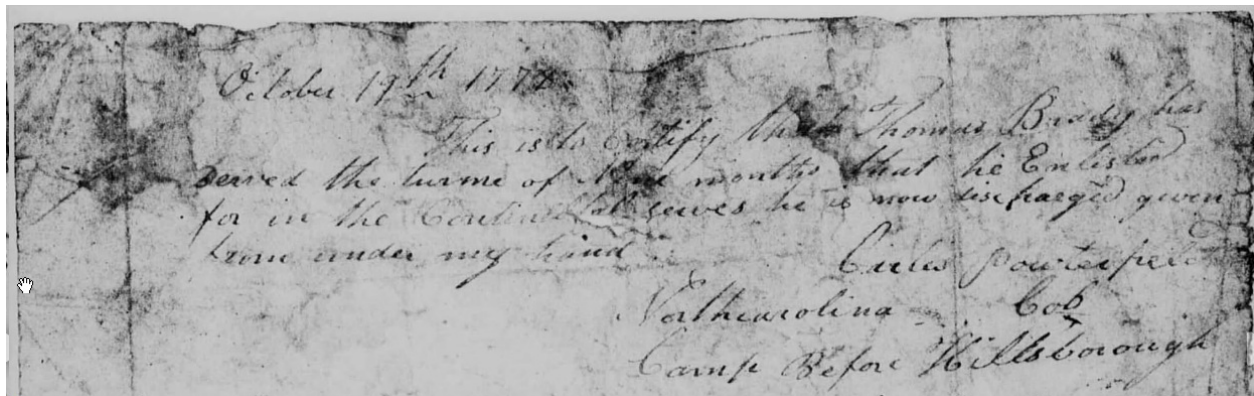 October 19th 177
This is to Certify that Thomas Brady has
Served the turme of Nine months that he Enlisted
for in the Continental serves he is now discharged given
from under my hand
Carles Powterfield
Northcarolina Col
Camp Before Hillsborough